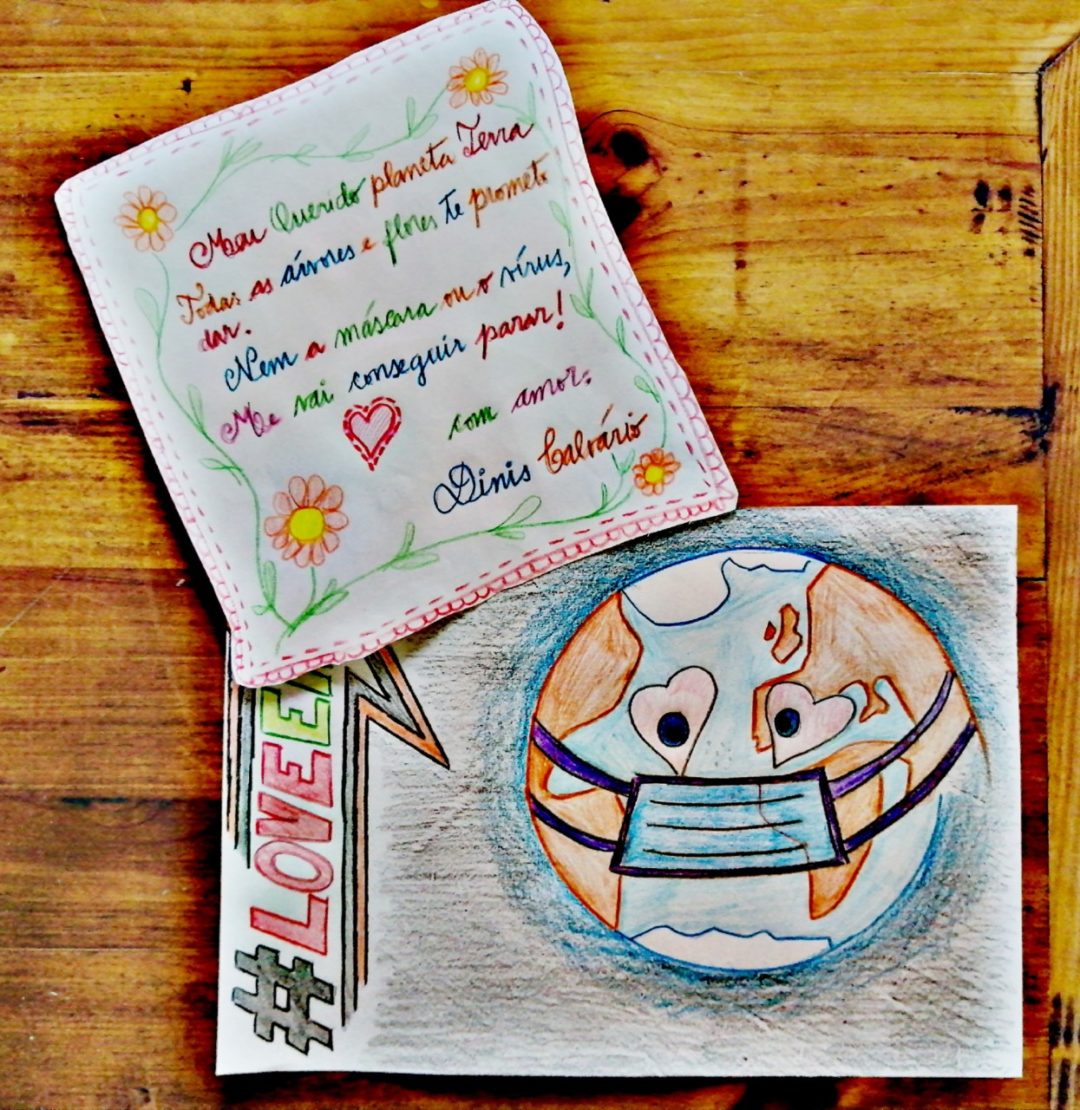 Meu Querido planeta Terra
Todas as árvores e flores te prometo
dar.
Nem a máscara ou o vírus,
Me vai conseguir parar!
com amor:
Dinis Calvário
#LOVEEA